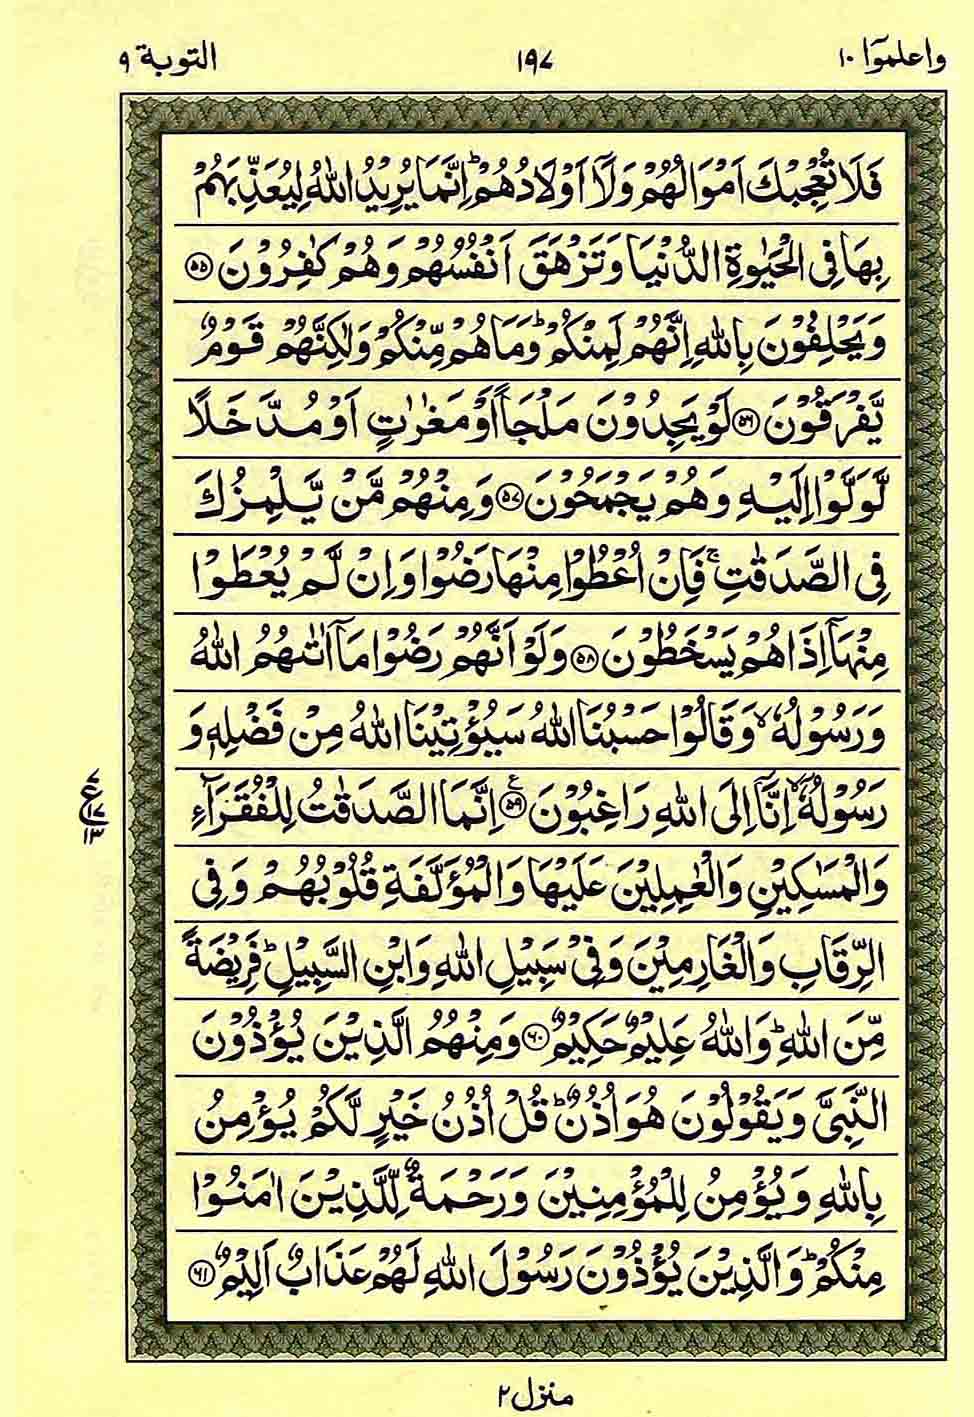 واعلموٓا ١٠
١٩٧
التوبة ٩
فَلَا تُعْجِبْكَ اَمْوَالُهُمْ وَلَآ اَوْلَادُهُمْ ؕ اِنَّمَا يُرِيْدُ اللّٰهُ لِيُعَذِّبَهُمْ
بِهَا فِى الْحَيٰوةِ الدُّنْيَا وَتَزْهَقَ اَنْفُسُهُمْ وَهُمْ كٰفِرُوْنَ ۝٥٥
وَيَحْلِفُوْنَ بِاللّٰهِ اِنَّهُمْ لَمِنْكُمْ ؕ وَمَا هُمْ مِّنْكُمْ وَلٰكِنَّهُمْ قَوْمٌ
يَّفْرَقُوْنَ ۝٥٦ لَوْ يَجِدُوْنَ مَلْجَاً اَوْ مَغٰرٰتٍ اَوْ مُدَّخَلًا
لَّوَلَّوْا اِلَيْهِ وَهُمْ يَجْمَحُوْنَ ۝٥٧ وَمِنْهُمْ مَّنْ يَّلْمِزُكَ
فِى الصَّدَقٰتِ ۚ فَاِنْ اُعْطُوْا مِنْهَا رَضُوْا وَاِنْ لَّمْ يُعْطَوْا
مِنْهَآ اِذَا هُمْ يَسْخَطُوْنَ ۝٥٨ وَلَوْ اَنَّهُمْ رَضُوْا مَآ اٰتٰىهُمُ اللّٰهُ
وَرَسُوْلُهٗ ۙ وَقَالُوْا حَسْبُنَا اللّٰهُ سَيُؤْتِيْنَا اللّٰهُ مِنْ فَضْلِهٖ وَ
رَسُوْلُهٗٓ ۙ اِنَّآ اِلَى اللّٰهِ رَاغِبُوْنَ ۝٥٩ ع اِنَّمَا الصَّدَقٰتُ لِلْفُقَرَآءِ
٧ ع ١٧ ١٣
وَالْمَسٰكِيْنِ وَالْعٰمِلِيْنَ عَلَيْهَا وَالْمُؤَلَّفَةِ قُلُوْبُهُمْ وَفِى
الرِّقَابِ وَالْغَارِمِيْنَ وَفِىْ سَبِيْلِ اللّٰهِ وَابْنِ السَّبِيْلِ ؕ فَرِيْضَةً
مِّنَ اللّٰهِ ؕ وَاللّٰهُ عَلِيْمٌ حَكِيْمٌ ۝٦٠ وَمِنْهُمُ الَّذِيْنَ يُؤْذُوْنَ
النَّبِىَّ وَيَقُوْلُوْنَ هُوَ اُذُنٌ ؕ قُلْ اُذُنُ خَيْرٍ لَّكُمْ يُؤْمِنُ
بِاللّٰهِ وَيُؤْمِنُ لِلْمُؤْمِنِيْنَ وَرَحْمَةٌ لِّلَّذِيْنَ اٰمَنُوْا
مِنْكُمْ ؕ وَالَّذِيْنَ يُؤْذُوْنَ رَسُوْلَ اللّٰهِ لَهُمْ عَذَابٌ اَلِيْمٌ ۝٦١
منزل ٢